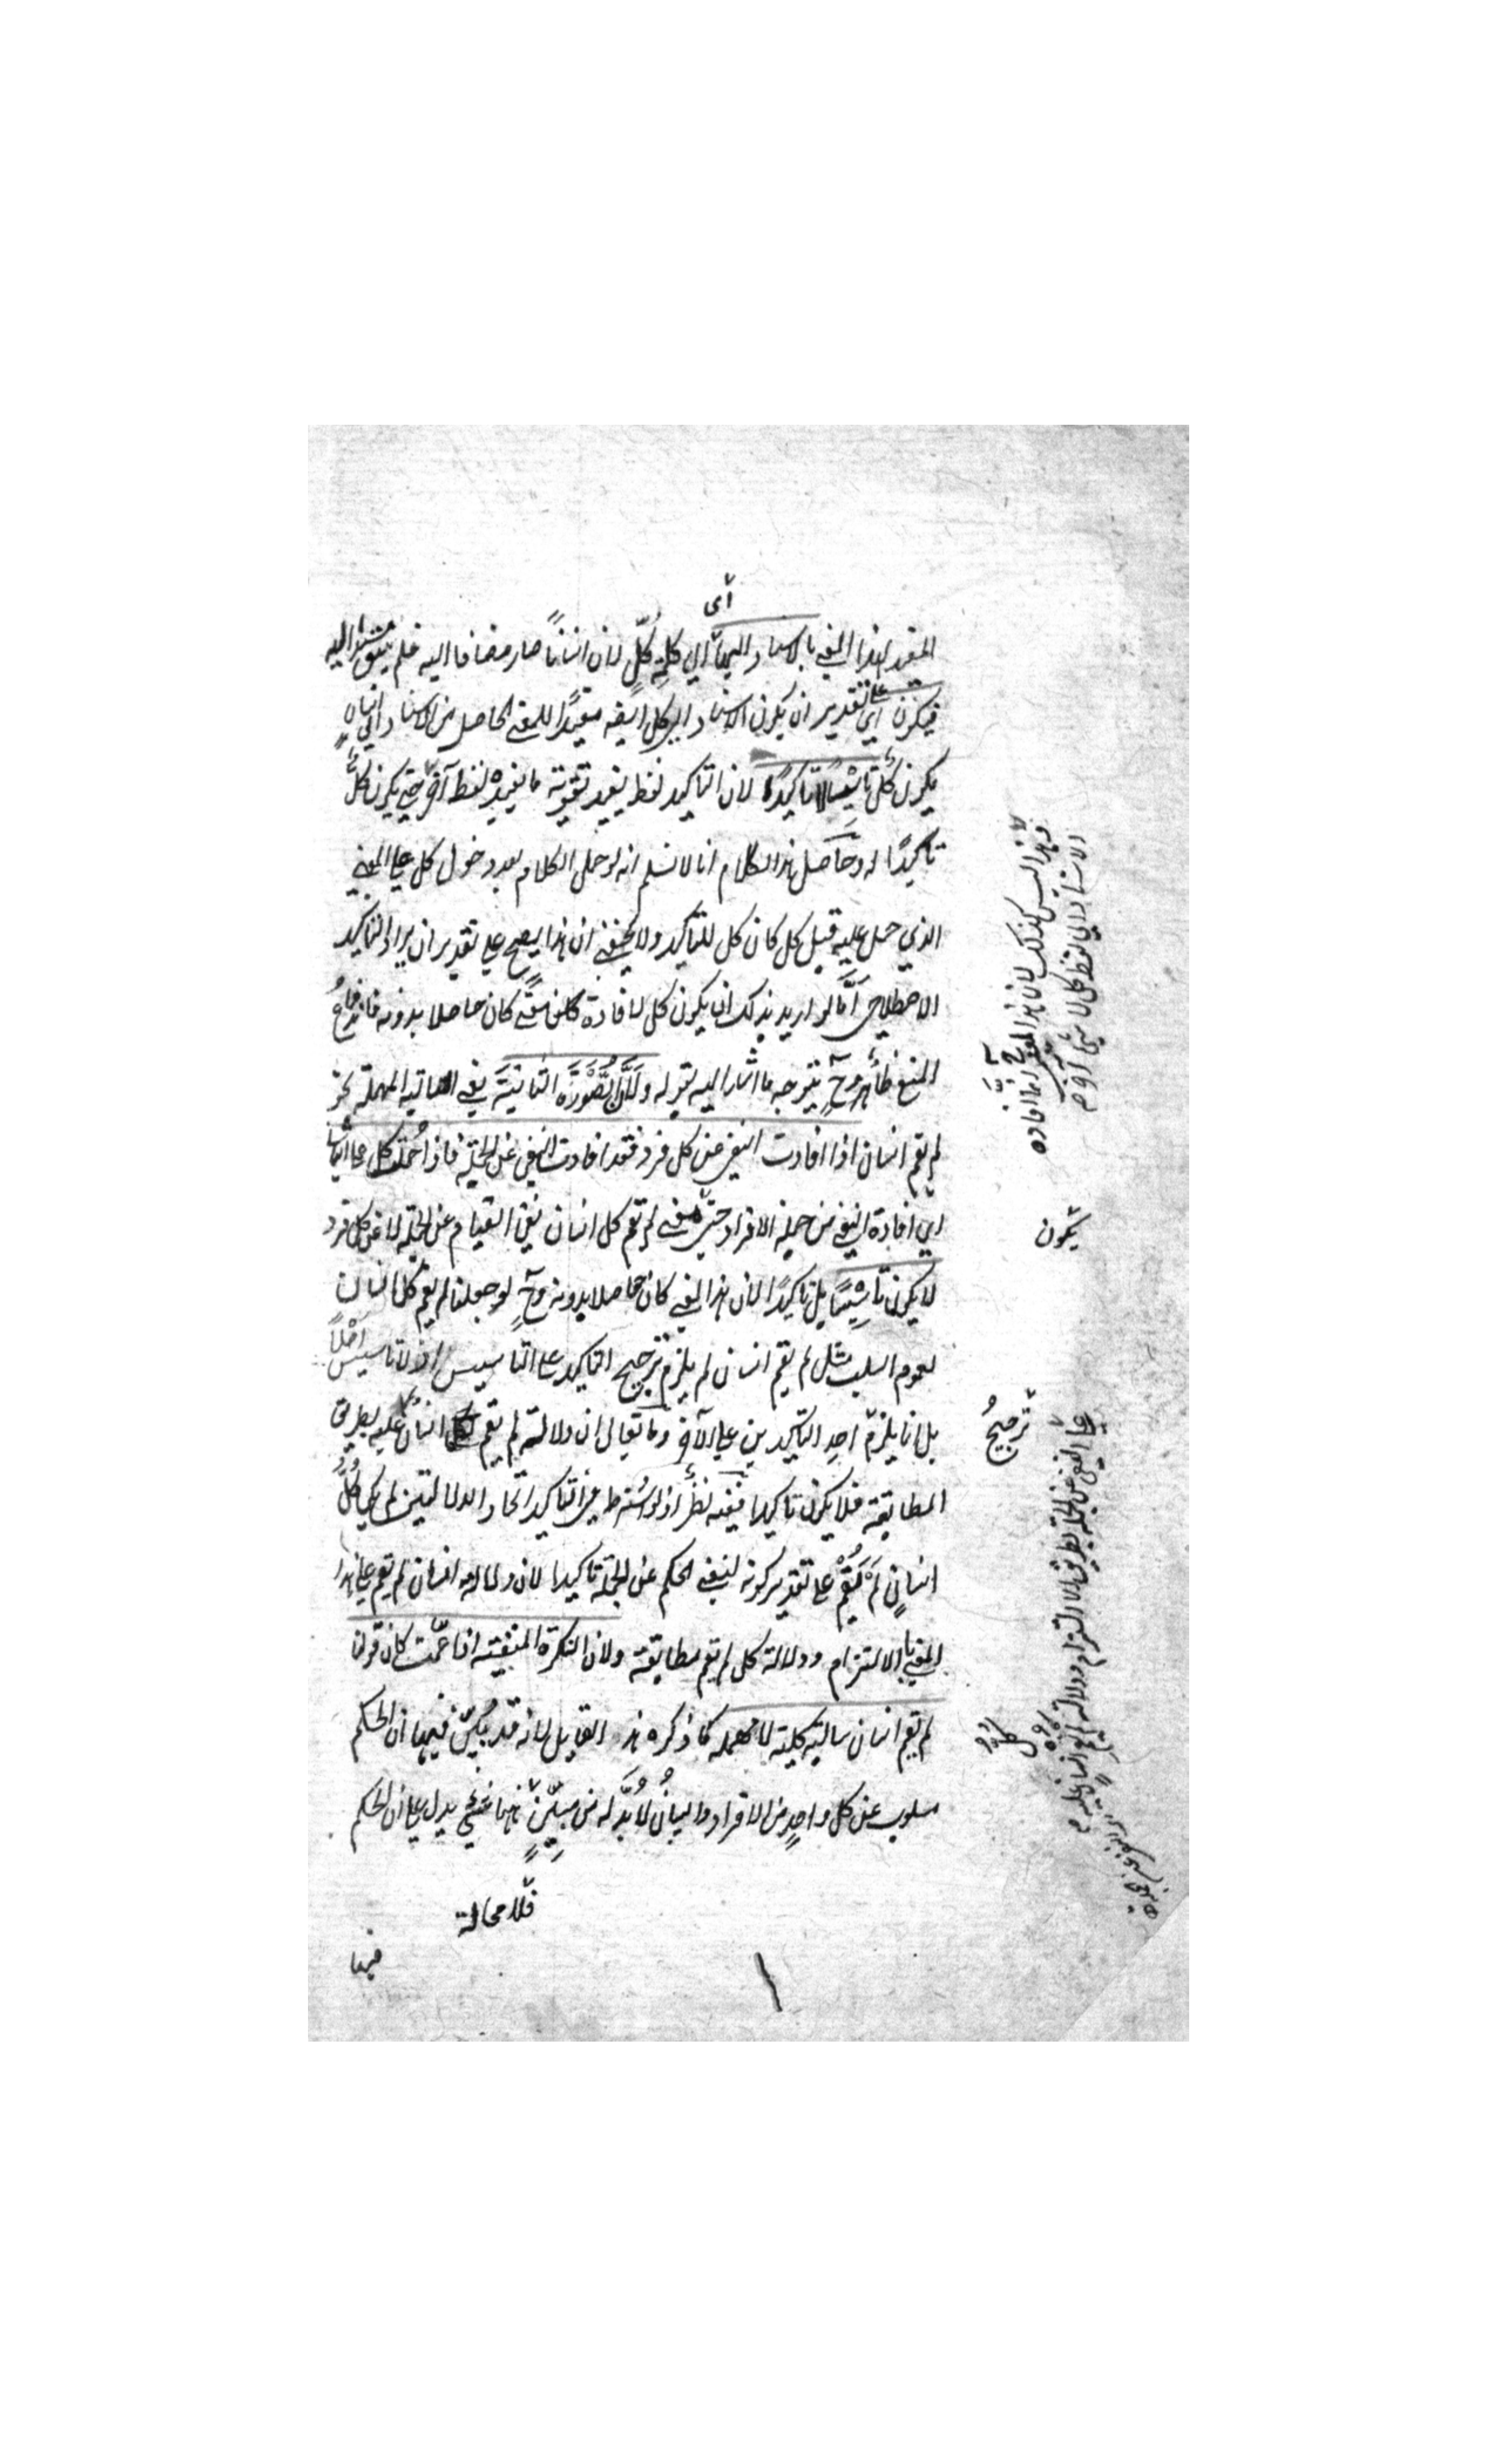 أى
المفيد لهذا المعنى بالاسناد اليها اي الى كلمة كل لان انسانا صار مضافا اليه فلم يبق مسندا اليه
فيكون اي على تقدير ان يكون الاسناد الى كل ايضا مفيدا للمعنى الحاصل من الاسناد الى انسان
يكون كل تأسيسا لا تاكيدا لان التاكيد لفظ يفيد تقوية ما يفيده لفظ آخر حتى يكون كل
تأكيدا له وحاصل هذا الكلام انا لا نسلم انه لو حمل الكلام بعد دخول كل على المعنى
الذي حمل عليه قبل كل كان كل للتأكيد ولا يخفى ان هذا يصح على تقدير ان يراد التأكيد
الاصطلاحى أما لو اريد بذلك ان يكون كل لافادة معنى كان حاصلا بدونه فاندفاع
المنع ظاهر وح يتوجه ما اشار اليه بقوله ولان الصورة الثانية يعني السالبة المهملة نحو
لم يقم انسان اذا افادت النفي عن كل فرد فقد افادت النفي عن الجملة فاذا حملت كل على الثاني
اي افادة النفي عن جملة الافراد حتى معنى لم يقم كل انسان نفي القيام عن الجملة لا عن كل فرد
يكون
لا يكون تأسيسا بل تاكيدا لان هذا المعنى كان حاصلا بدونه وح لو جعلنا لم يقم كل انسان
لعموم السلب مثل لم يقم انسان لم يلزم ترجيح التاكيد على التأسيس اذ لا تاسيس أصلا
بل انما يلزم احد التاكيدين على الآخر وما يقال ان دلالة لم يقم انسان عليه بطريق
ترجيح
المطابقة فلا يكون تاكيدا ففيه نظر اذ لو اشترط في التأكيد اتحاد الدلالتين لم يكن كل
انسان لم يقم على تقدير كونه لنفي الحكم عن الجملة تاكيدا لان دلالة انسان لم يقم على هذا
المعنى بالالتزام ودلالة كل لم يقم مطابقة ولان النكرة المنفية اذا عمت كان قولنا
لم يقم انسان سالبة كلية لا مهملة كما ذكره هذا القايل لانه قد بين فيها ان الحكم
مسلوب عن كل واحد من الافراد والبيان لا بد له من مبين فيها شيء يدل على ان الحكم
فلا محالة
فيها
وهذا ليس كذلك لان هذا المعنى ح انما افاده
الاسناد الى لفظ كل لا شيء آخر
على النفي عن الجملة بطريق الالتزام ودلالة لم يقم